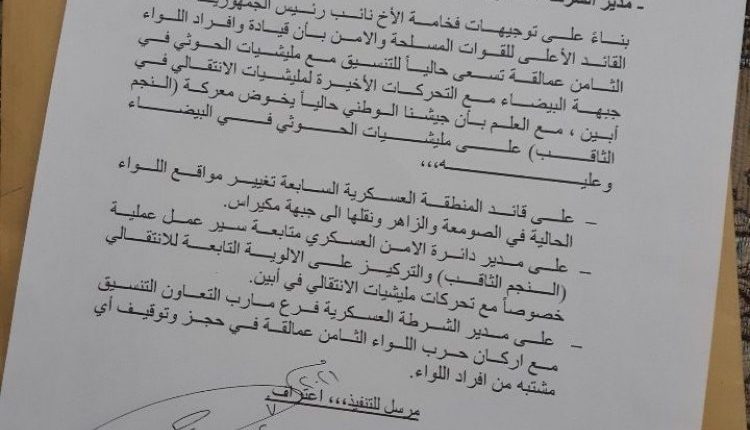 - مدير الشرطة
بناءً على توجيهات فخامة الأخ نائب رئيس الجمهورية
القائد الأعلى للقوات المسلحة والامن بأن قيادة وافراد اللواء
الثامن عمالقة تسعى حالياً للتنسيق مع مليشيات الحوثي في
جبهة البيضاء مع التحركات الأخيرة لمليشيات الانتقالي في
أبين ، مع العلم بأن جيشنا الوطني حالياً يخوض معركة (النجم
الثاقب) على مليشيات الحوثي في البيضاء
وعليه،،،
– على قائد المنطقة العسكرية السابعة تغيير مواقع اللواء
الحالية في الصومعة والزاهر ونقلها الى جبهة مكيراس.
– على مدير دائرة الامن العسكري متابعة سير عمل عملية
(النجم الثاقب) والتركيز على الالوية التابعة للانتقالي
خصوصاً مع تحركات مليشيات الانتقالي في أبين.
– على مدير الشرطة العسكرية فرع مارب التعاون التنسيق
مع اركان حرب اللواء الثامن عمالقة في حجز وتوقيف أي
مشتبه من افراد اللواء.
مرسل للتنفيذ،،، اعتراف